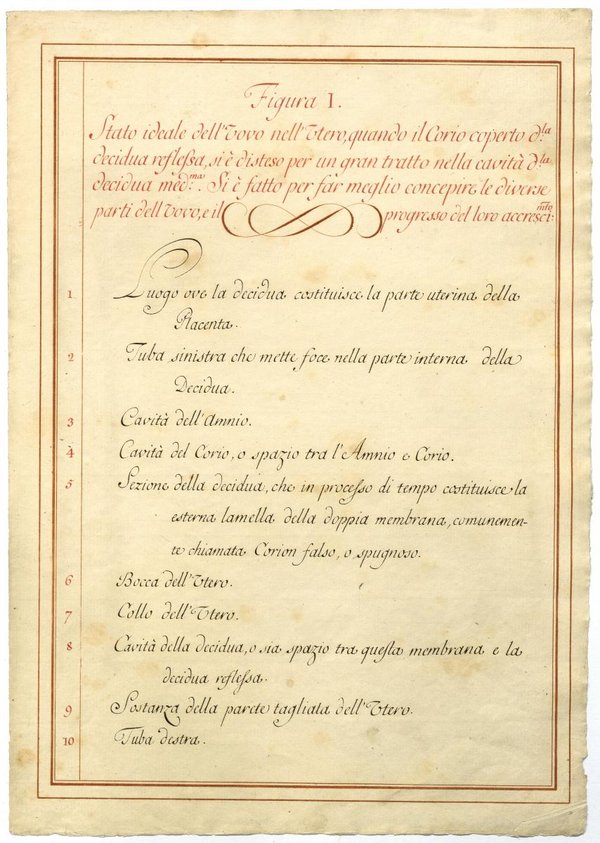 Figura I.
Stato ideale dell'Vovo nell'Vtero, quando il Corio coperto d.la
decidua reflessa, si è disteso per un gran tratto nella cavità d.la
decidua med.ma. Si è fatto per far meglio concepire le diverse
parti dell'Vovo, e il progresso del loro accresci:mto
1 Luogo ove la decidua costituisce la parte uterina della
Placenta.
2 Tuba sinistra che mette foce nella parte interna della
Decidua.
3 Cavità dell'Amnio.
4 Cavità del Corio, o spazio tra l'Amnio e Corio.
5 Sezione della decidua, che in processo di tempo costituisce la
esterna lamella della doppia membrana, comunemen-
te chiamata Corion falso, o spugnoso.
6 Bocca dell'Vtero.
7 Collo dell'Vtero.
8 Cavità della decidua, o sia spazio tra questa membrana e la
decidua reflessa.
9 Sostanza della parete tagliata dell'Vtero.
10 Tuba destra.